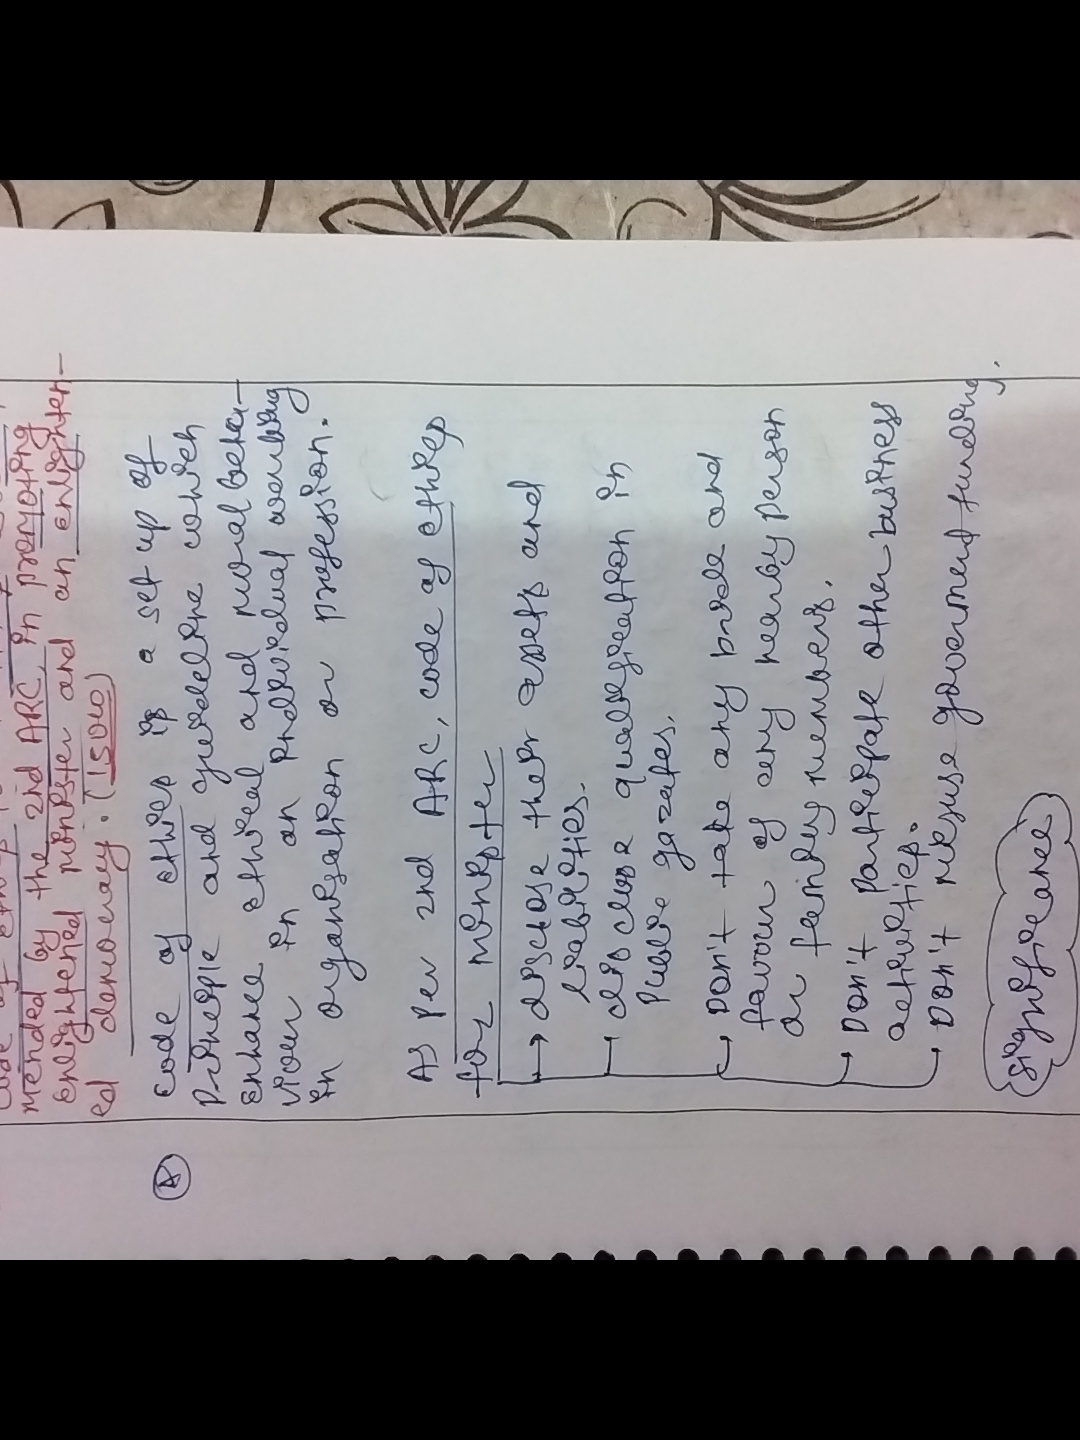 code of ethics
mended by the 2nd ARC in promoting
enlightened minister and an enlighten-
ed democracy. (150w)
A
code of ethics is a set up of
principle and guideline which
enhance ethical and moral beha-
viour in an individual working
in organisation or profession.
As per 2nd ARC, code of ethics
for minister
→ disclose their assets and
liabilities.
→ disclose qualification in
public gazates.
→ Don't take any bride and
favour of any nearby person
or family members.
→ Don't participate other business
activities.
→ Don't misuse government funding.
Significance